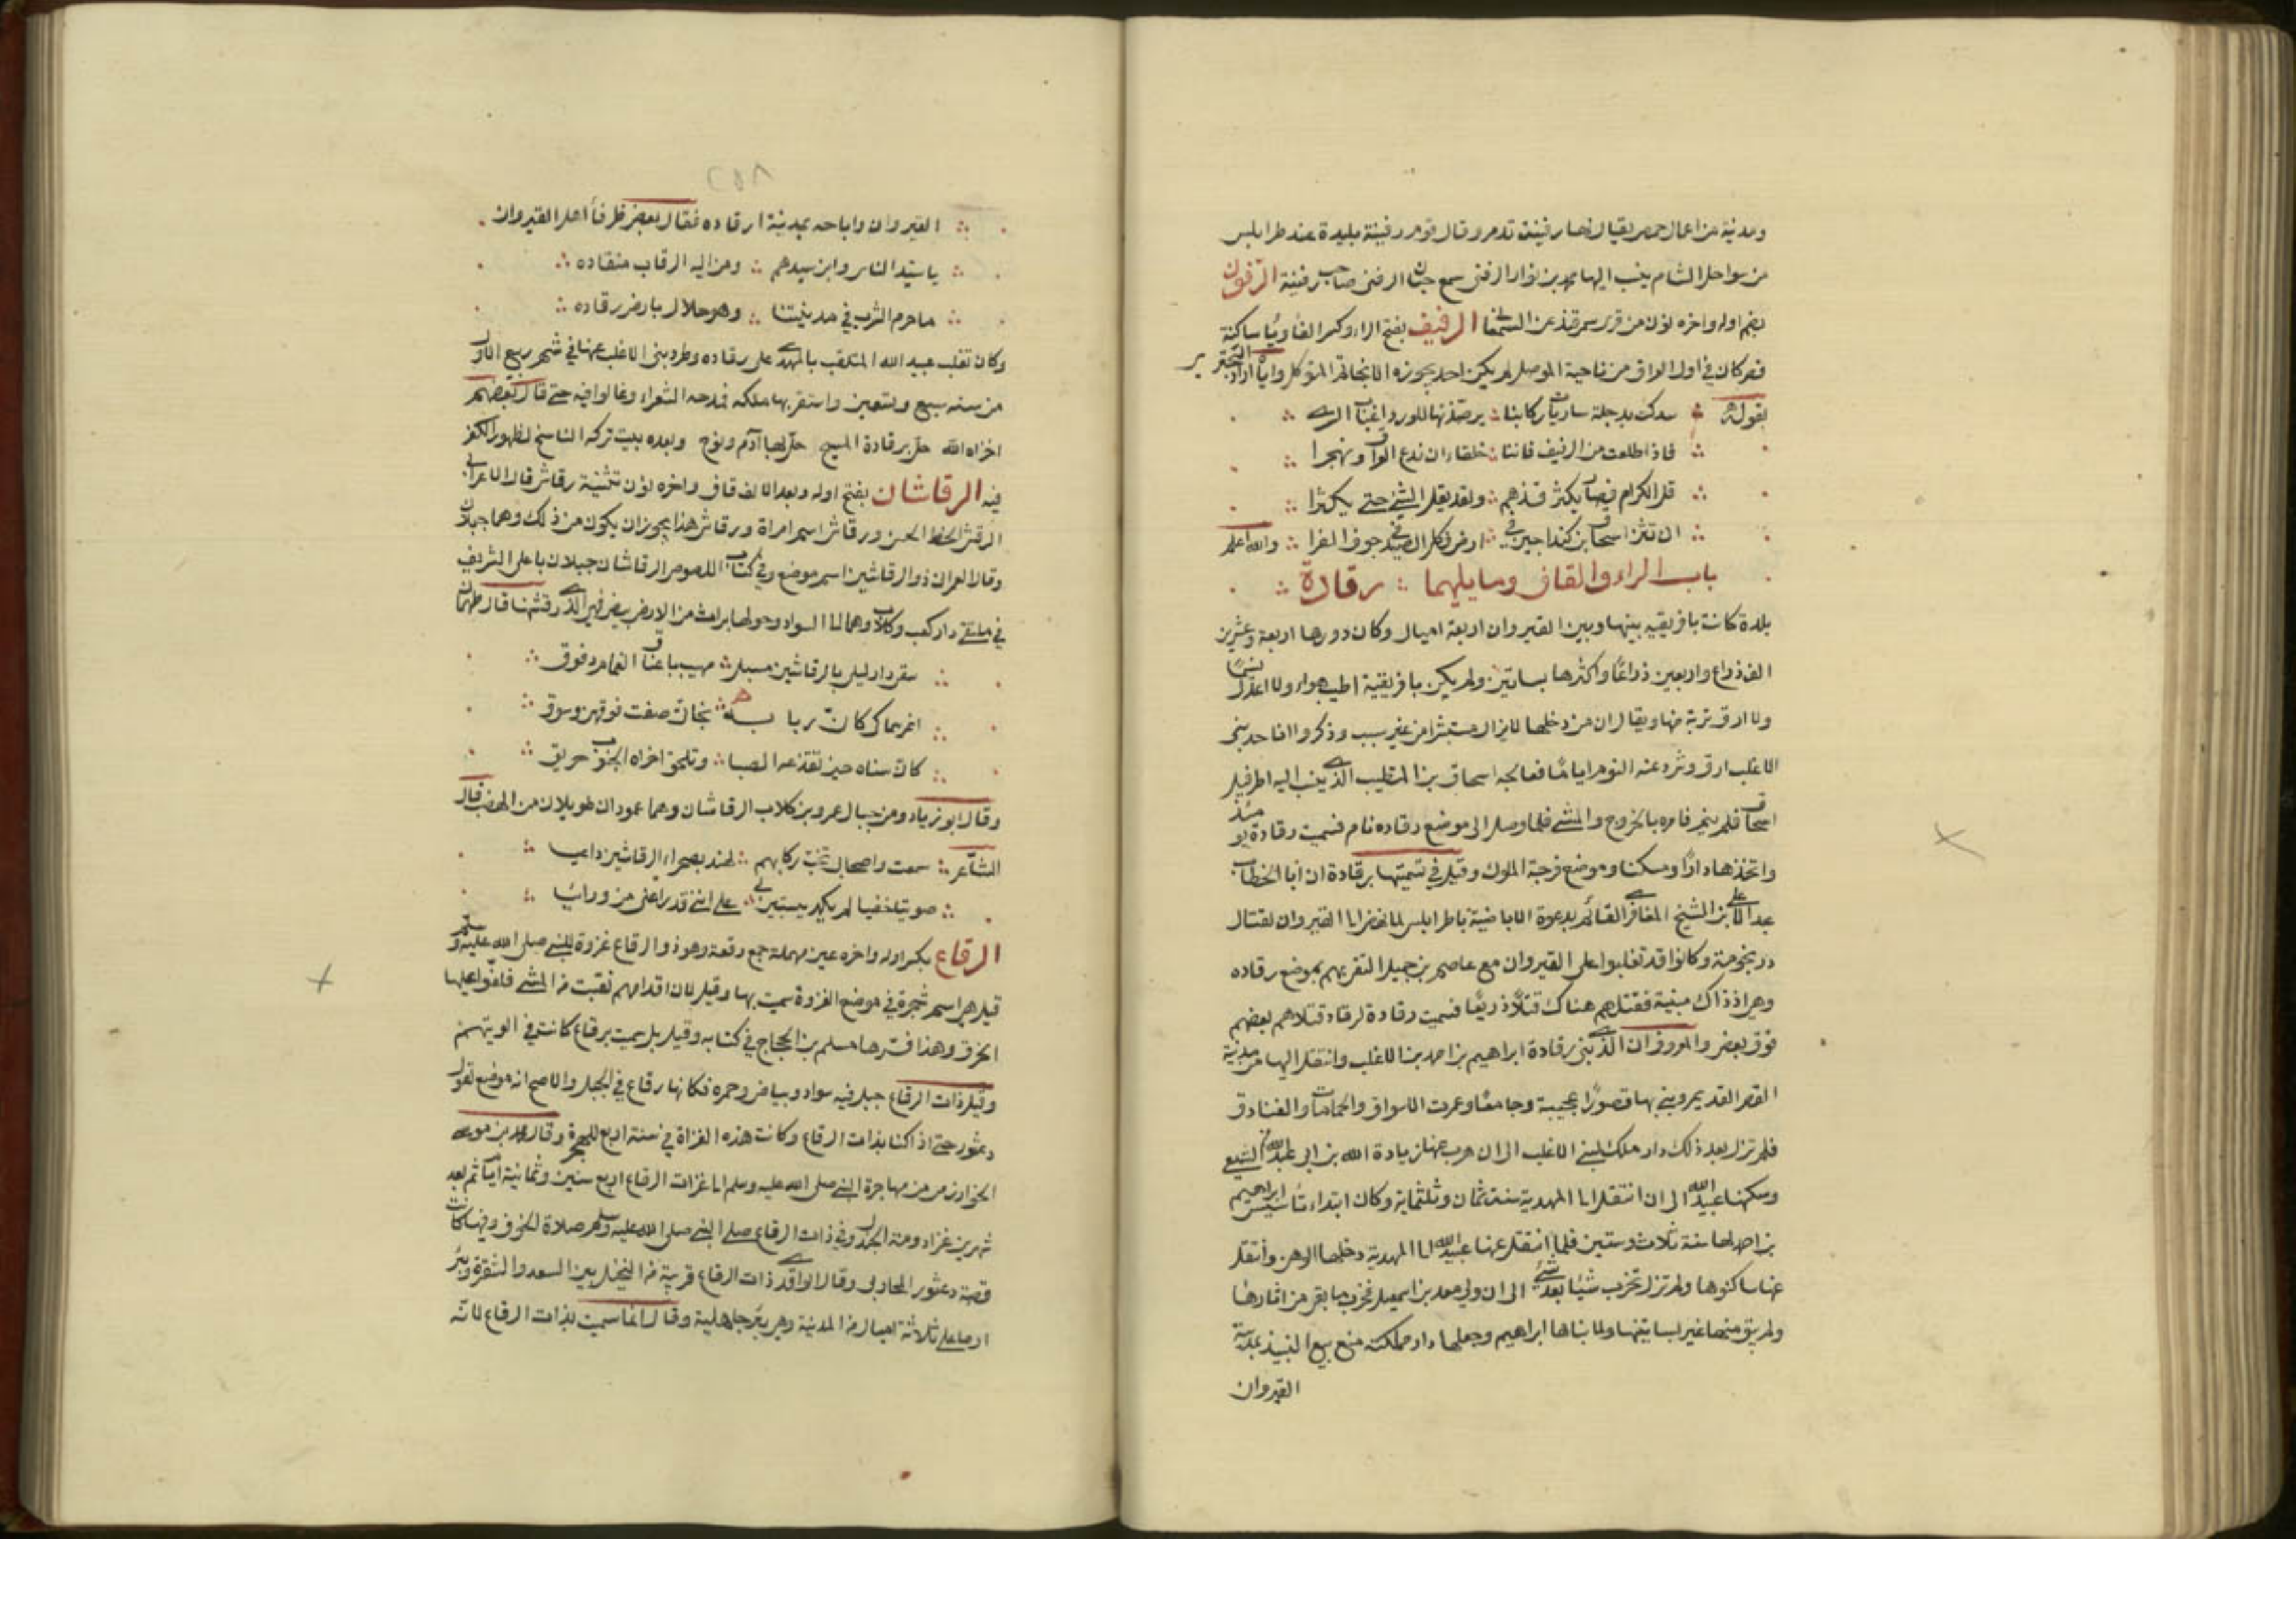 ومدينة من اعمال حمص يقال لها رفنية تدمر وقال قوم رفنية بليدة عند طرابلس
من سواحل الشام ينسب اليها محمد بن نوار الرفنى سمع حبان الرفنى صاحب رفنية الرفون
بضم اوله واخره نون من قرى سمرقند عن السمعانى الرفيف بفتح الراء وكسر الفا ويا ساكنة
قصر كان في اول العراق من ناحية الموصل لم يكن احد يجوزه الا بخاتم المتوكل واياه اراد البحترى
بقوله سلكت بدجلة ساريات ركابنا يرصدنها للورد اغباب السرى
فاذا طلعت من الرفيف فاننا خلقاء ان ندع العراق ونهجرا
قل الكرام فصار يكثر فذهم ولقد يقل الشئ حتى يكثرا
ان تثن اسحاق بن كنداجيق في ارض فكل الصيد في جوف الفرا والله اعلم
باب الراء والقاف وما يليهما رقادة
بلدة كانت بافريقيه بينها وبين القيروان اربعة اميال وكان دورها اربعة وعشرين
الف ذراع واربعين ذراعا واكثرها بساتين ولم يكن بافريقية اطيب هواء ولا اعدل نسيما
ولا ارق تربة منها ويقال ان من دخلها لا يزال مستبشرا من غير سبب وذكروا ان احد بنى
الاغلب ارق وشرد عنه النوم اياما فعالجه اسحاق بن المتطبب الذى ينسب اليه اطريفل
اسحاق فلم ينم فامره بالخروج والمشى فلما وصل الى موضع رقاده نام فسميت رقادة يومئذ
واتخذها دارا ومسكنا وموضع فرجة الملوك وقيل في تسميتها برقادة ان ابا الخطاب
عبد الاعلى بن الشيخ المغافرى القائم بدعوة الاباضية باطرابلس لما نهض الى القيروان لقتال
ورنجومة وكانوا قد تغلبوا على القيروان مع عاصم بن جميل التقى بهم بموضع رقاده
وهى اذ ذاك منية فقتلهم هناك قتلا ذريعا فسميت رقادة لرقاد قتلاهم بعضهم
فوق بعض والمعروف ان الذى بنى رقادة ابراهيم بن احمد بن الاغلب وانتقل اليها من مدينة
القصر القديم وبنى بها قصورا عجيبة وجامعا وعمرت الاسواق والحمامات والفنادق
فلم تزل بعد ذلك دار ملك لبنى الاغلب الى ان هرب عنها زيادة الله بن ابى عبد الله الشيعى
وسكنها عبيد الله الى ان انتقل الى المهدية سنة ثمان وثلثماية وكان ابتداء تأسيس ابراهيم
بن احمد لها سنة ثلاث وستين فلما انتقل عنها عبيد الله الى المهدية دخلها الوهن وانتقل
عنها ساكنوها ولم تزل تخرب شيئا بعد شئ الى ان ولى معد بن اسمعيل فخرب ما بقى من اثارها
ولم يبق منها غير بساتينها ولما بناها ابراهيم وجعلها دار مملكته منع بيع النبيذ بمدينة
القيروان
٢٥٨
القيروان واباحه بمدينة ارقاده فقال بعض ظرفا اهل القيروان
يا سيد الناس وابن سيدهم ومن اليه الرقاب منقاده
ما حرم الشرب في مدينتنا وهو حلال بارض رقاده
وكان تغلب عبيد الله الملقب بالمهدى على رقاده وطرد بنى الاغلب عنها في شهر ربيع الاول
من سنه سبع وتسعين واستقر بها ملكه فمدحه الشعراء وغالوا فيه حتى قال بعضهم
اخزاه الله حل برقادة المسيح حل بها آدم ونوح وبعده بيت تركه الناسخ لظهور الكفر
فيه الرقاشان بفتح اوله وبعد الالف قاف واخره نون تثنية رقاش قال الاعرابى
الرقش الخط الحسن ورقاش اسم امراة ورقاش هذا يجوز ان يكون من ذلك وهما جبلان
وقال العمرانى ذو الرقاشين اسم موضع وفى كتاب اللصوص الرقاشان جبلان باعلى الشريف
في ملتقى دار كعب وكلاب وهما الى السواد وحولهما براث من الارض بيض فهى الذى رقشتها قال طهمان
سقى دار ليلى بالرقاشين مسبل مهيب باعناق الغمام دفوق
اغر سماكى كان ربابه بخاتى صفت فوقهن وسوق
كان سناه حين تقذعه الصبا وتلحق اخراه الجنوب حريق
وقال ابو زياد ومن جبال عمرو بن كلاب الرقاشان وهما عمودان طويلان من الهضب قال
الشاعر سمعت واصحابى تخب ركابهم لهند بصحراء الرقاشين داعيا
صويتا خفيا لم يكد يستبين لى على اننى قد راعنى من ورائيا
الرقاع بكسر اوله واخره عين مهملة جمع رقعة وهو ذو الرقاع غزوة للنبى صلى الله عليه وسلم
قيل هى اسم شجرة في موضع الغزوة سميت بها وقيل لان اقدامهم نقبت من المشى فلفوا عليها
الخرق وهذا فسرها مسلم بن الحجاج في كتابه وقيل بل سميت برقاع كانت في الويتهم
وقيل ذات الرقاع جبل فيه سواد وبياض وحمره فكانها رقاع في الجبل والاصح انه موضع لقول
دعثور حتى اذا كنا بذات الرقاع وكانت هذه الغزاة في سنة اربع للهجرة وقال محمد بن موسى
الخوارزمى من مهاجرة النبى صلى الله عليه وسلم الى غزاة الرقاع اربع سنين وثمانية ايام ثم بعد
شهرين غزا دومة الجندل وفى ذات الرقاع صلى النبى صلى الله عليه وسلم صلاة الخوف وفيها كانت
قصة دعثور المحاربى وقال الواقدى ذات الرقاع قريبة من النخيل بين السعد والشقرة وبئر
ارما على ثلاثة اميال من المدينة وهى بئر جاهلية وقال انما سميت بذات الرقاع لانه